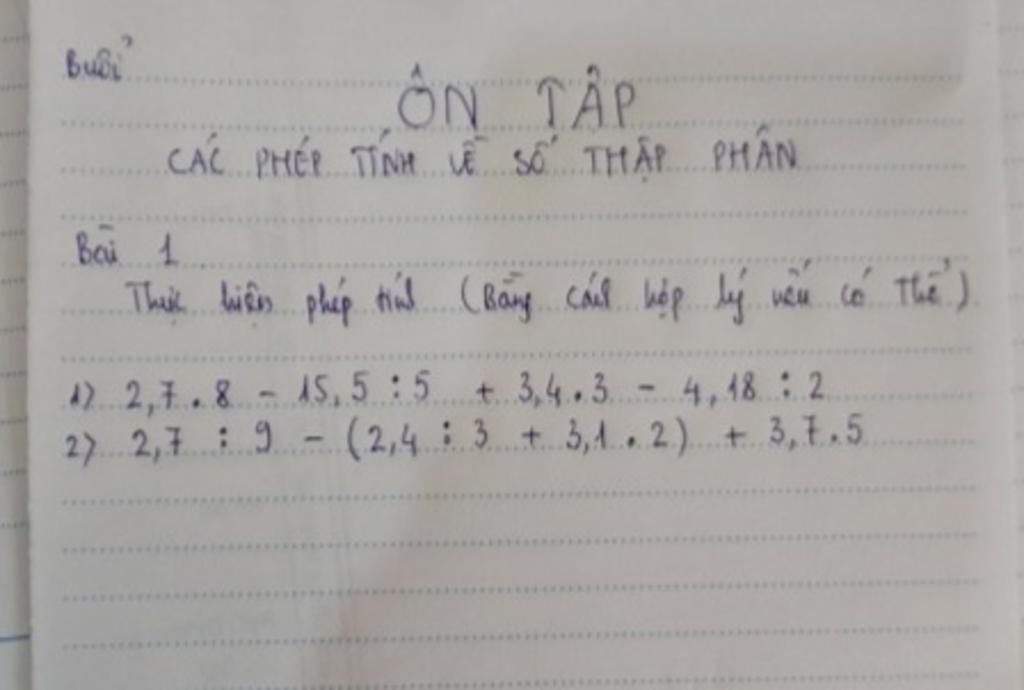 Buổi
ÔN TẬP
CÁC PHÉP TÍNH VỀ SỐ THẬP PHÂN
Bài 1
Thực hiện phép tính (Bằng cách hợp lý nếu có thể)
1) 2,7 . 8 - 15,5 : 5 + 3,4 . 3 - 4,18 : 2
2) 2,7 : 9 - (2,4 : 3 + 3,1 . 2) + 3,7 . 5